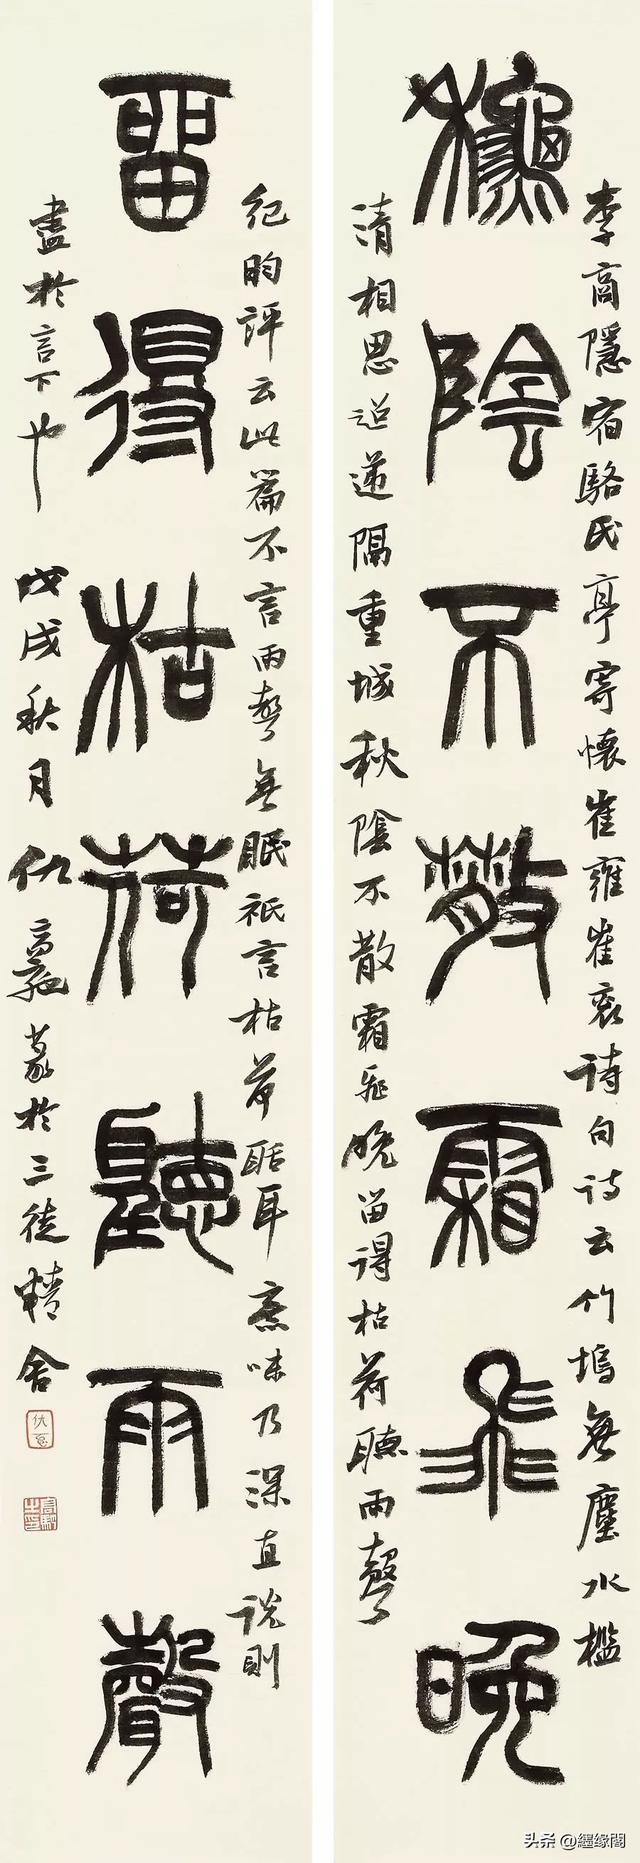 李商隱宿駱氏亭寄懷崔雍崔袞詩句詩云竹塢無塵水檻
秋陰不散霜飛晚
清相思迢遞隔重城秋陰不散霜飛晚留得枯荷聽雨聲
紀昀評云此篇不言雨聲無眠祇言枯荷聒耳意味乃深直說則
留得枯荷聽雨聲
盡於言下也
戊戌秋月仇高馳篆於三徒精舍
头条 @纒缘閣